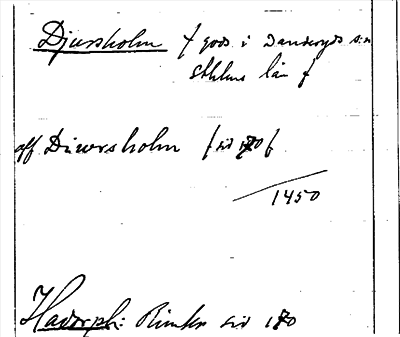 Djursholm / gods i Danderyds sn
Sthlms län /
aff Diursholm / sid 170 /
1450
Hadorph: Rimkr sid 170